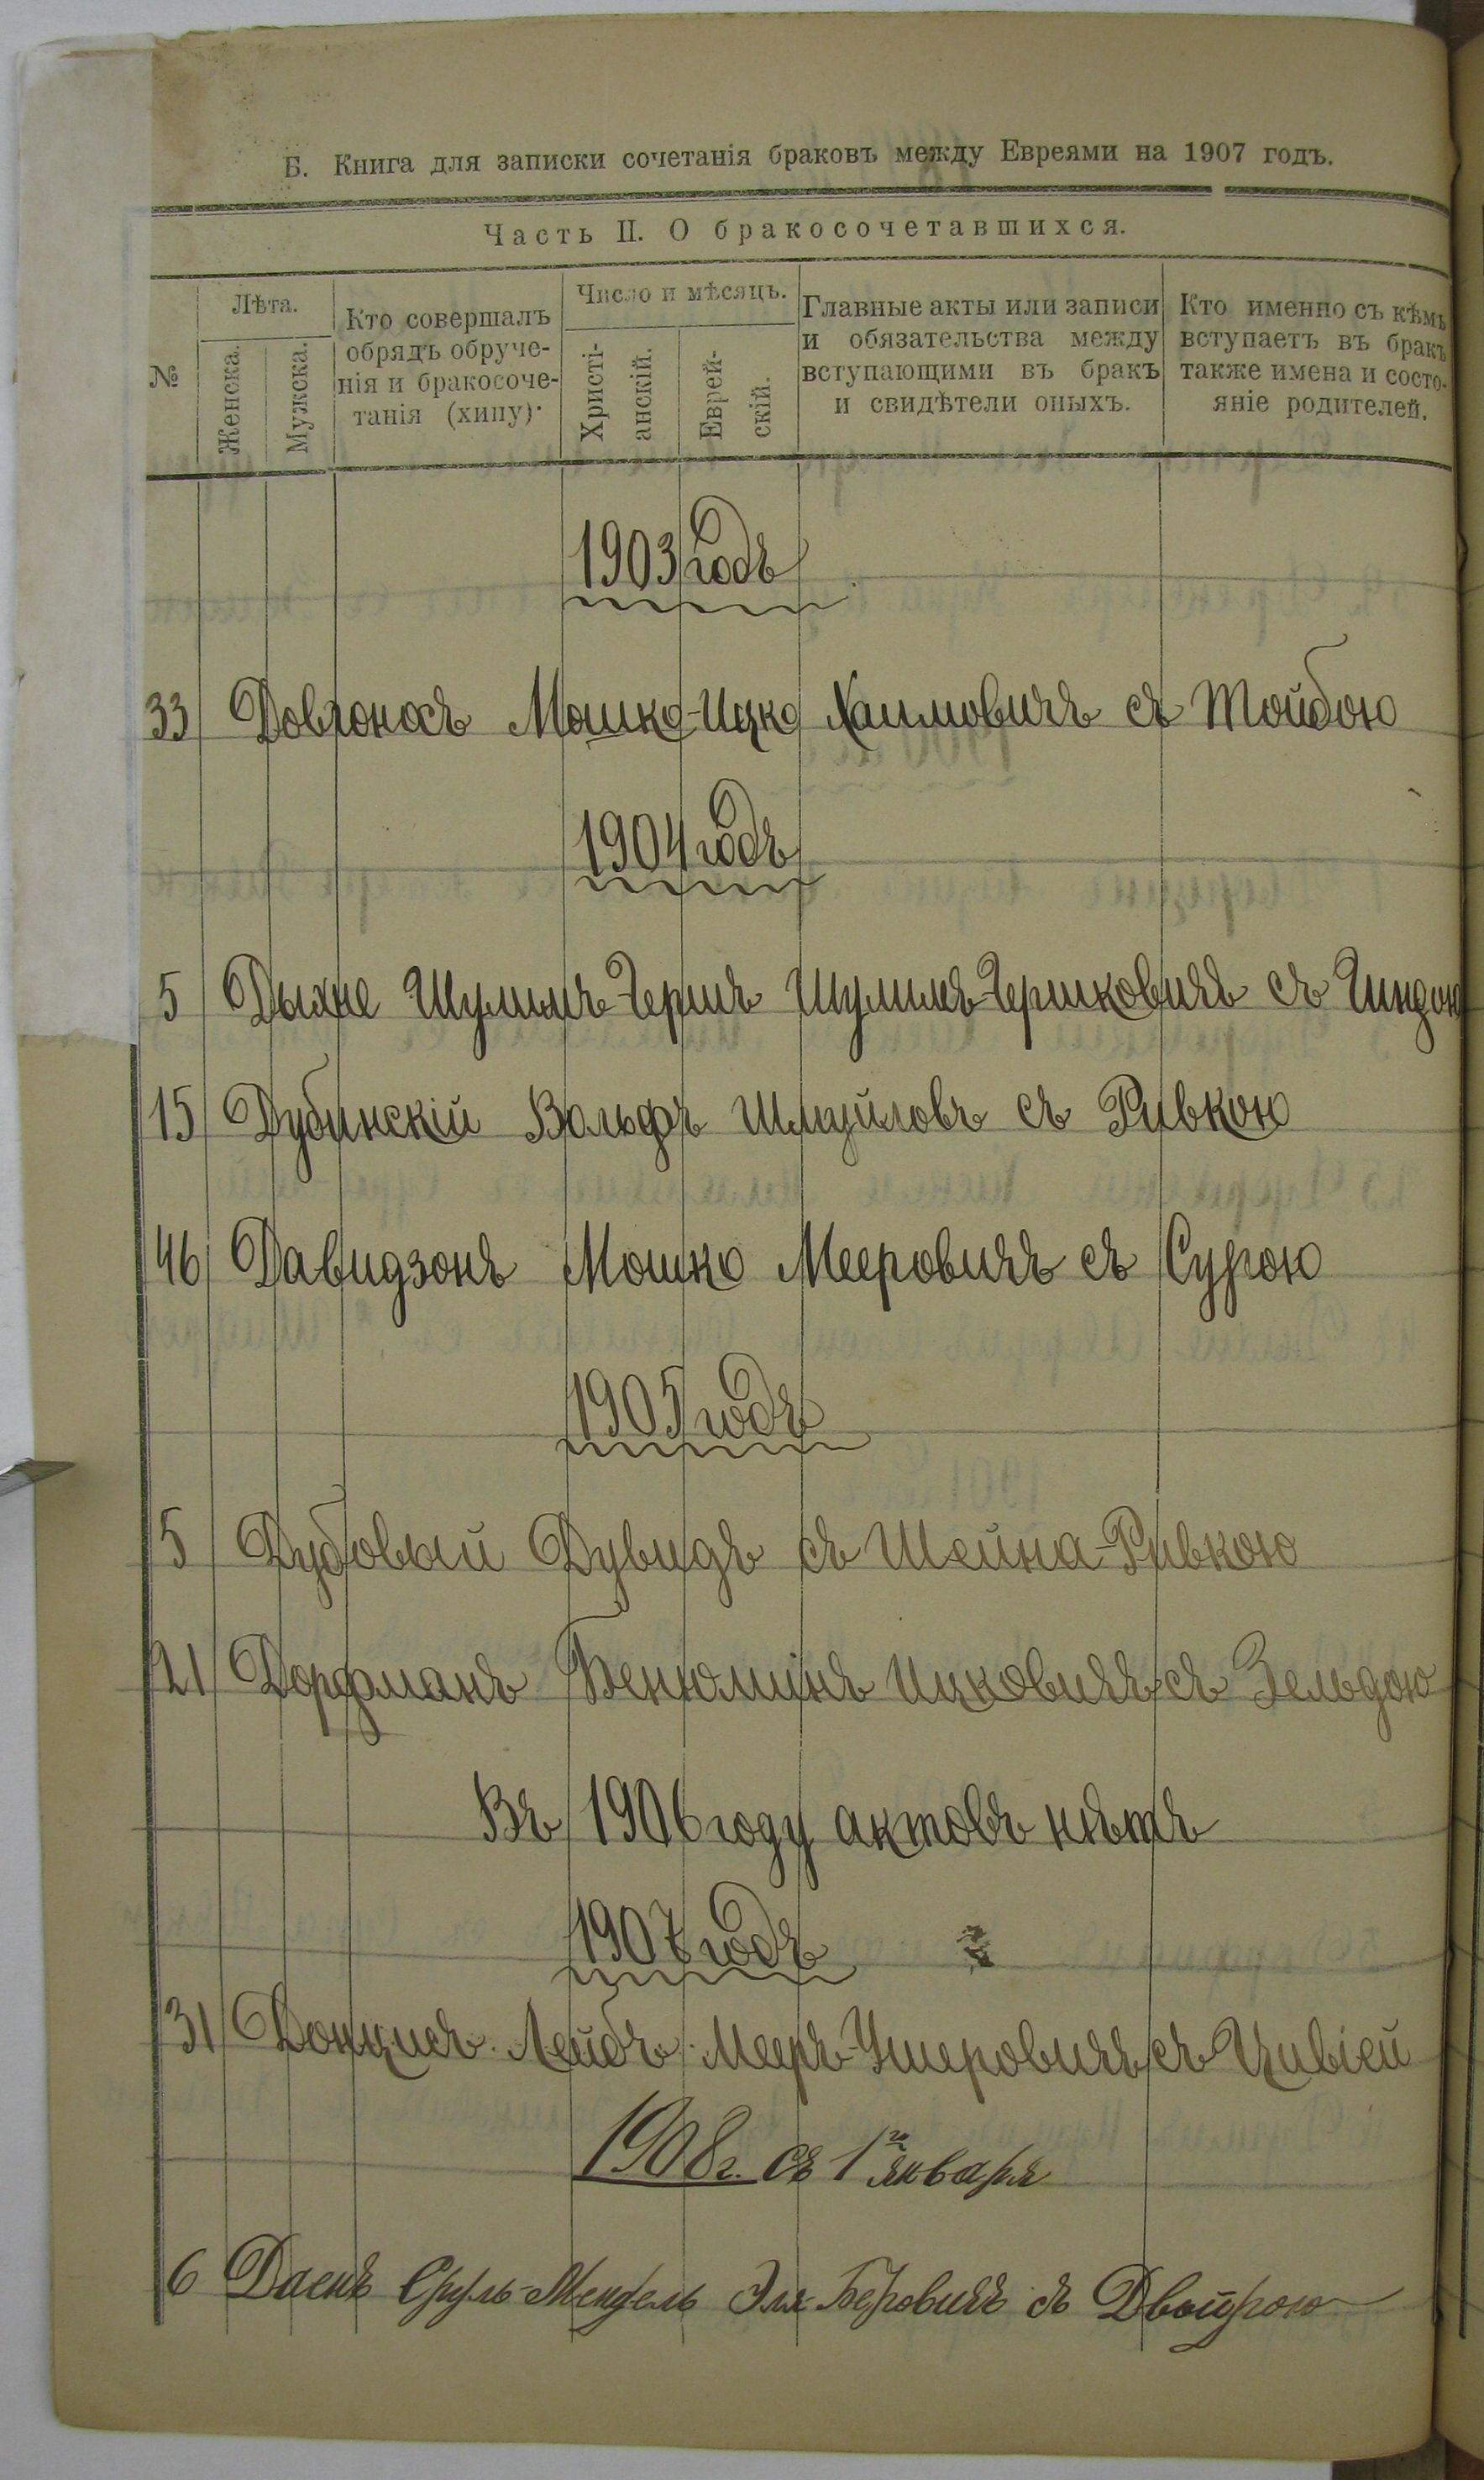 Б. Книга для записки сочетанія браковъ между Евреями на 1907 годъ.
Часть II. О бракосочетавшихся.
№
Лѣта.
Женска.
Мужска.
Кто совершалъ
обрядъ обруче-
нія и бракосоче-
танія (хипу).
Число и мѣсяцъ.
Христі-
анскій.
Еврей-
скій.
Главные акты или записи
и обязательства между
вступающими въ бракъ
и свидѣтели оныхъ.
Кто именно съ кѣмъ
вступаетъ въ бракъ
также имена и состо-
яніе родителей.
1903 годъ
33 Довгоносъ Мошко-Ицко Хаимовичъ съ Тойбою
1904 годъ
5 Дыхне Шулимъ-Гершъ Шулимъ-Гершковичъ съ Гиндою
15 Дубинскій Вольфъ Шмуйловъ съ Ривкою
46 Давидзонъ Мошко Мееровичъ съ Сурою
1905 годъ
5 Дубовый Дувидъ съ Шейна-Ривкою
21 Дорфманъ Бенюминъ Ицковичъ съ Зельдою
Въ 1906 году актовъ нѣтъ
1907 годъ
31 Донцисъ Лейбъ Мееръ-Ушеровичъ съ Цивіей
1908 г. съ 1го января
6 Даенъ Сруль-Мендель Эля-Беровичъ съ Двойрою